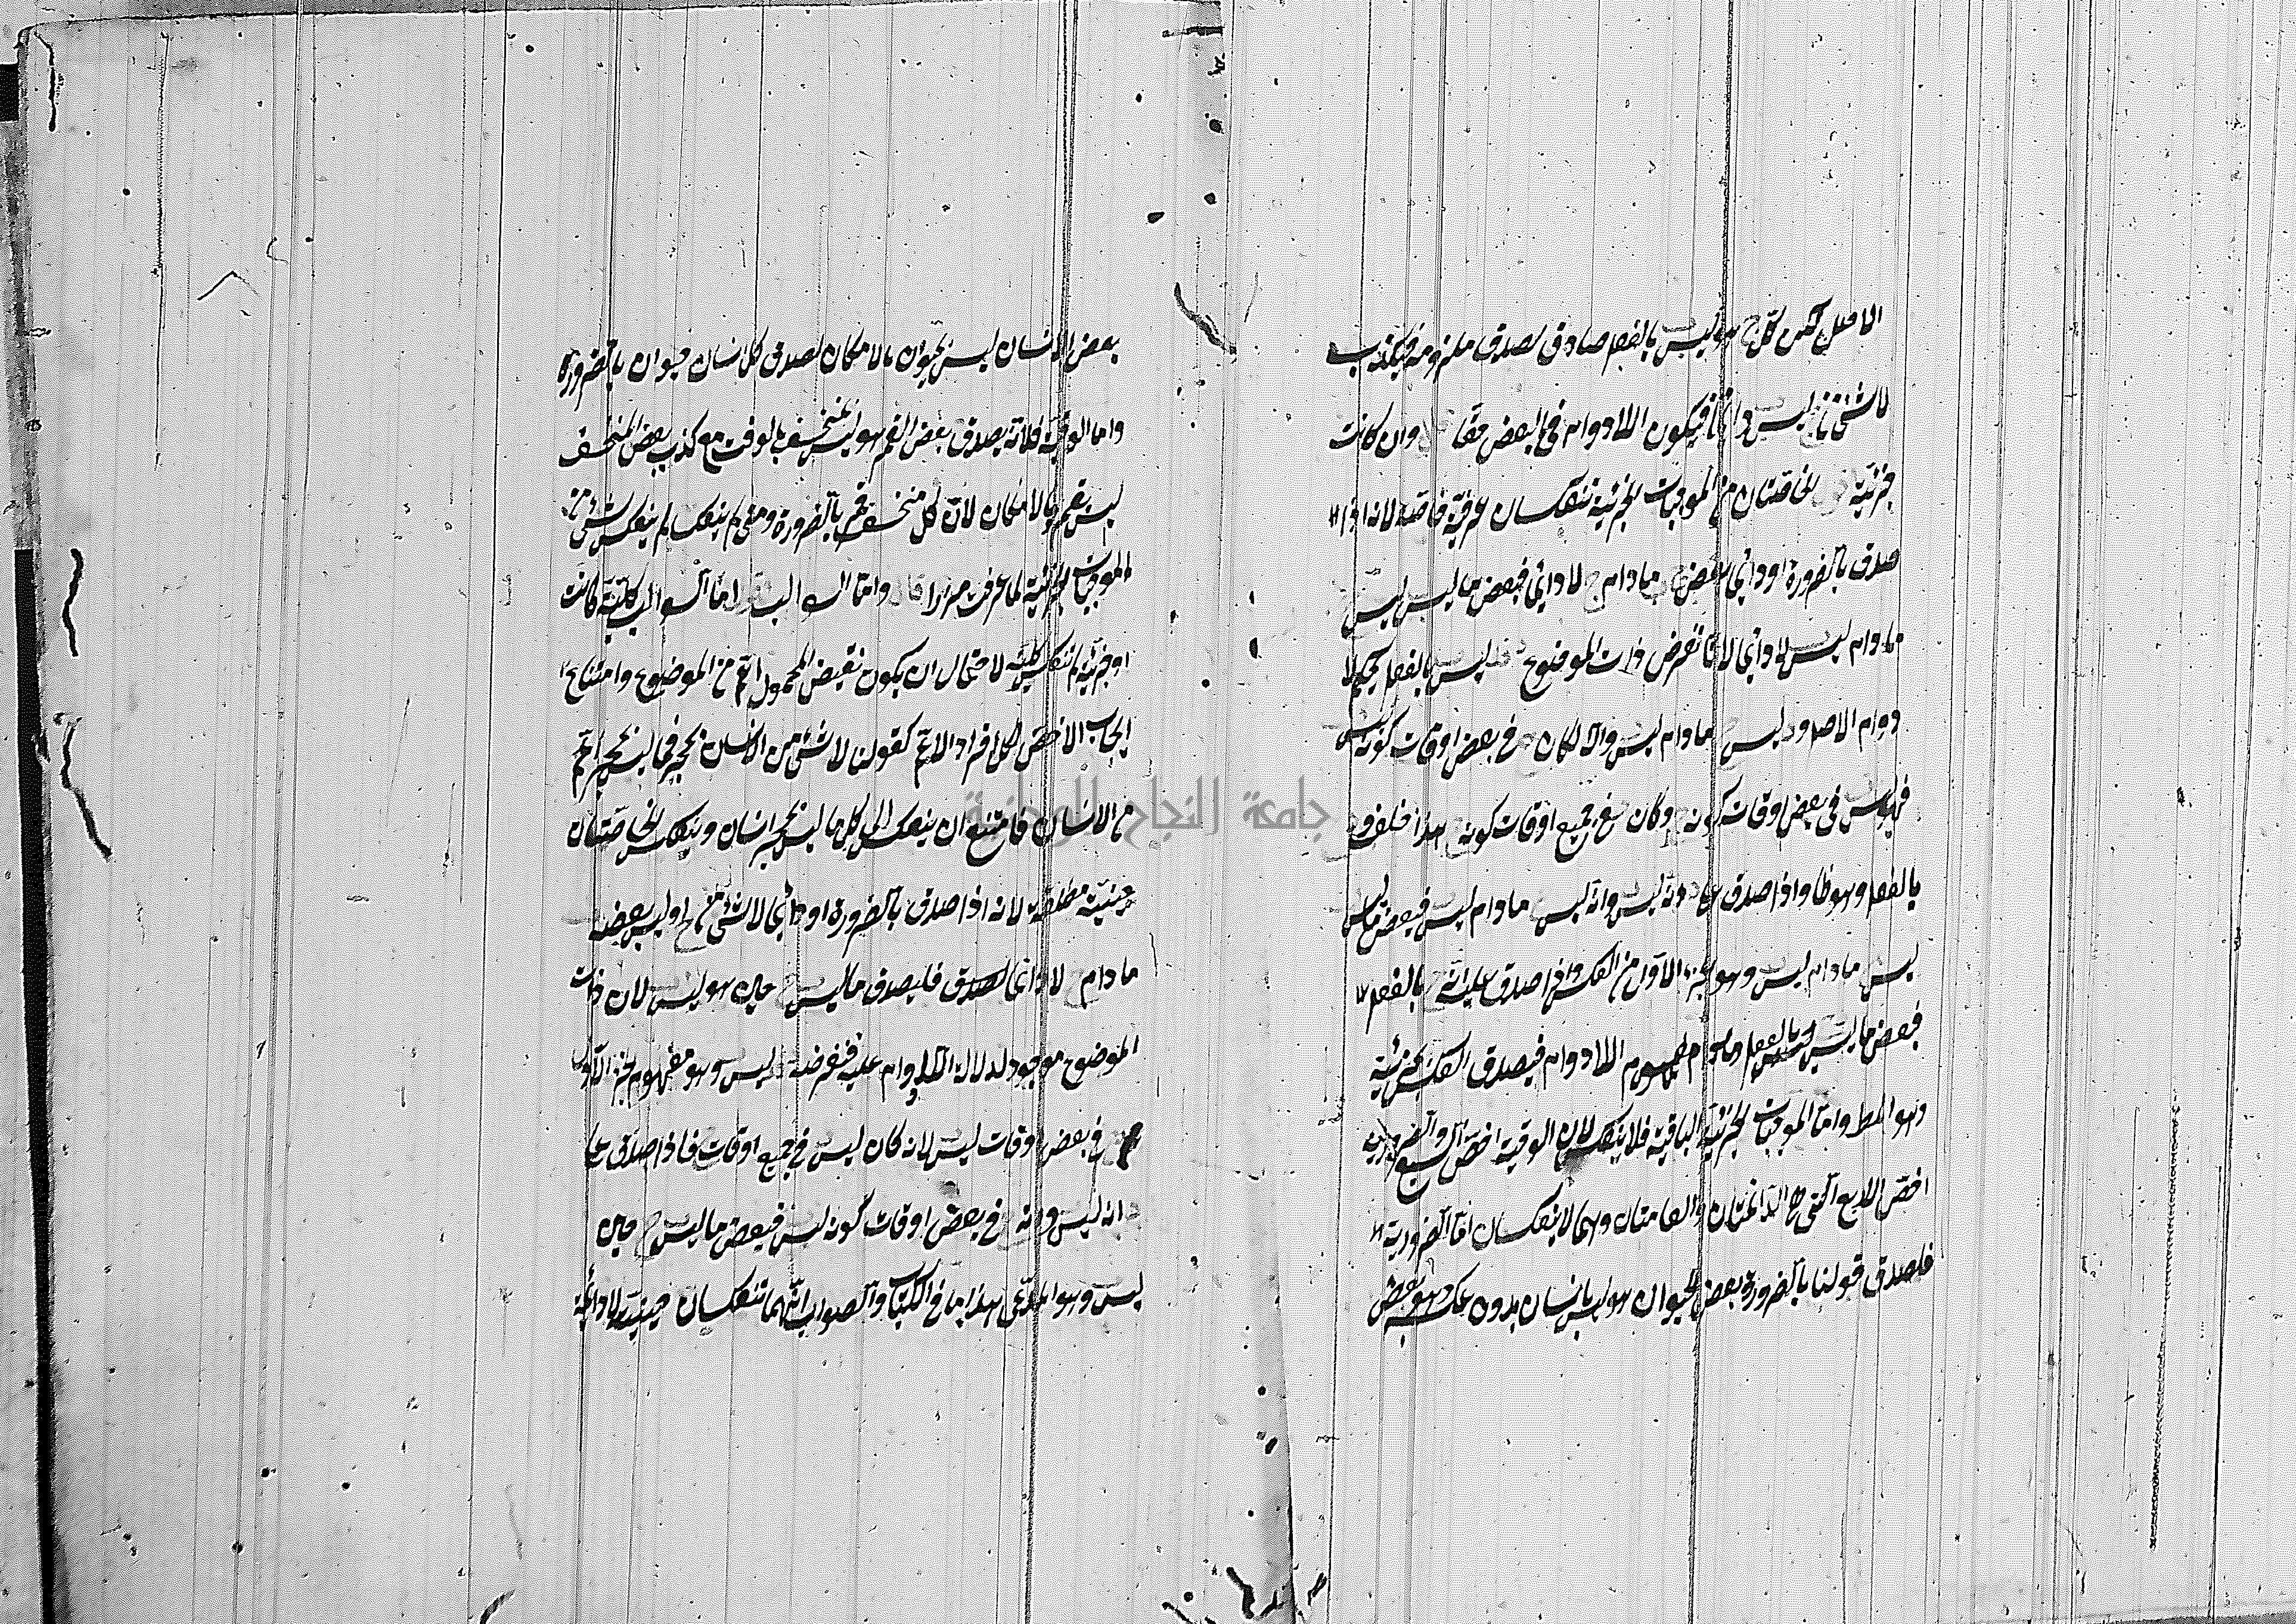 الاصل لكن كل ج هو ليس بالفعل صادق لصدق ملزومه فيكذب
لا شئ من ج ليس دائما فيكون اللادوام في البعض حقا وان كانت
جزئية الخاصتان من الموجبات الجزئية تنعكسان عرفية خاصة لانه اذا
صدق بالضرورة او دائما بعض ج مادام ج لا دائما فبعض ما ليس ليس
مادام ليس لا دائما لانا نفرض ذات الموضوع ليس بالفعل بحكم لا
دوام الاصل ود ليس مادام ليس والا لكان في بعض اوقات كونه ليس
فهو ليس في بعض اوقات كونه وكان في جميع اوقات كونه هذا خلف ود
بالفعل وهو ظ واذا صدق على د انه ليس وانه ليس مادام ليس فبعض ما ليس
ليس مادام ليس وهو الجزء الاول من العكس واذا صدق عليه انه بالفعل
فبعض ما ليس ليس بالفعل وهو مفهوم اللادوام فيصدق العكس بجزئيه
وهو المط واما الموجبات الجزئية الباقية فلا ينعكس لان الوقتية اخص السبع والضرورية
اخص الاربع التي هي الدائمتان والعامتان وهما لا ينعكسان اما الضرورية
فلصدق قولنا بالضرورة بعض الحيوان هو ليس بانسان بدون عكسه وهو بعض
بعض الانسان ليس بحيوان بالامكان لصدق كل انسان حيوان بالضرورة
واما الوقتية فلانه يصدق بعض القمر هو ليس بمنخسف بالوقت مع كذب بعض المنخسف
ليس بقمر بالامكان لان كل منخسف قمر بالضرورة ومتى لم ينعكسا لم ينعكس شئ من
الموجبات الجزئية لما عرفت مرارا قال واما السوالب اما السوالب كلية كانت
او جزئية لم تنعكس كلية لاحتمال ان يكون نقيض المحمول اعم من الموضوع وامتناع
ايجاب الاخص لكل افراد الاعم كقولنا لا شئ من الانسان بحجر فما ليس بحجر اعم
من الانسان فامتنع ان ينعكس الى كل ما ليس بحجر انسان وينعكس الخاصتان
حينية مطلقة لانه اذا صدق بالضرورة او دائما لا شئ من ج او ليس بعضه
مادام لا دائما فليصدق ما ليس حين هو ليس لان ذات
الموضوع موجود لدلالة اللادوام عليه فنفرضه ليس وهو مفهوم الجزء الاول
في بعض اوقات ليس لانه كان ليس في جميع اوقات فاذا صدق على
انه ليس وانه في بعض اوقات كونه ليس فبعض ما ليس ج حين
ليس وهو المدعى هذا ما في الكتاب والصواب انهما تنعكسان حينية لا دائمة
جامعة النجاح الوطنية